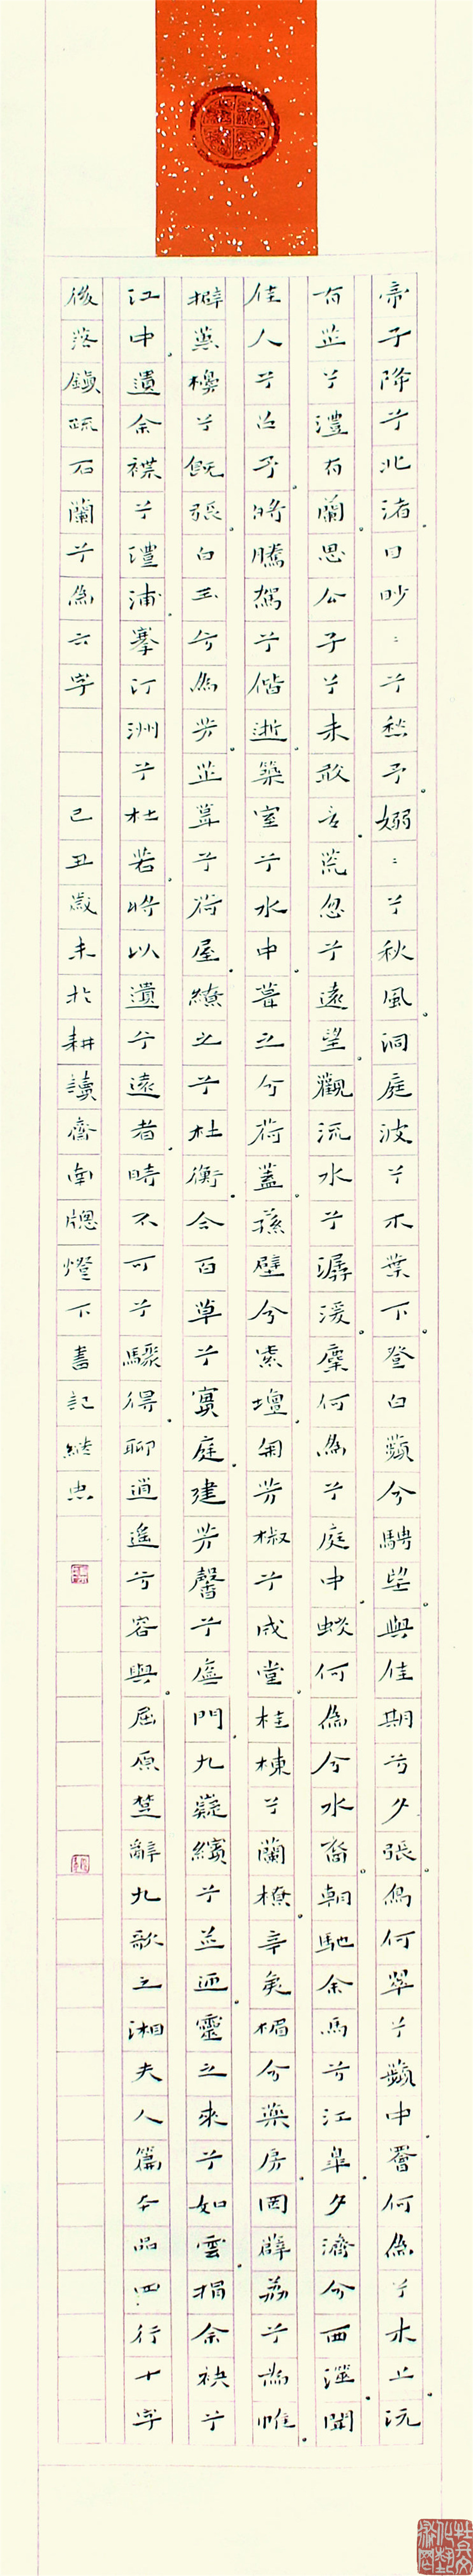 帝子降兮北渚目眇〻兮愁予嫋〻兮秋風洞庭波兮木葉下登白薠兮騁望與佳期兮夕張鳥何翠兮蘋中罾何為兮木上沅
有芷兮澧有蘭思公子兮未敢言荒忽兮遠望觀流水兮潺湲麋何為兮庭中蛟何為兮水裔朝馳余馬兮江皋夕濟兮西澨聞
佳人兮召予將騰駕兮偕逝築室兮水中葺之兮荷蓋蓀壁兮紫壇匊芳椒兮成堂桂棟兮蘭橑辛夷楣兮藥房罔薜荔兮為帷
擗蕙櫋兮既張白玉兮為芳芷葺兮荷屋繚之兮杜衡合百草兮實庭建芳馨兮廡門九嶷繽兮並迎靈之來兮如雲捐余袂兮
江中遺余褋兮澧浦搴汀洲兮杜若將以遺兮遠者時不可兮驟得聊逍遙兮容與屈原楚辭九歌之湘夫人篇本品四行十字
後落鎮疏石蘭兮為六字 己丑歲末於耕讀齋南牕燈下書記繼忠